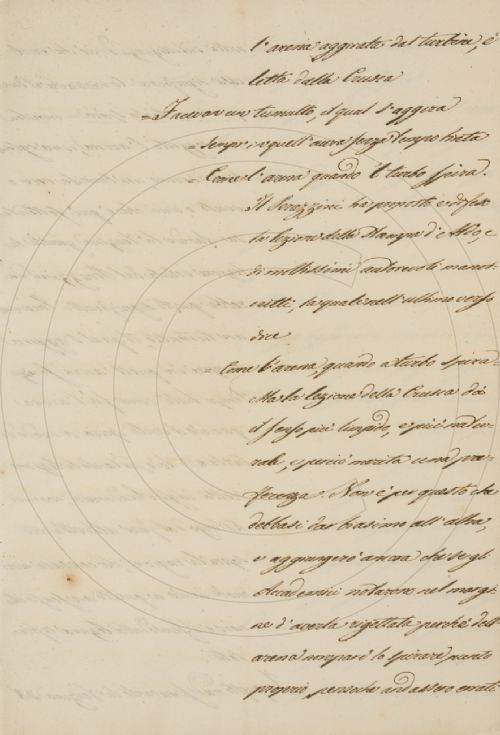 l'arena aggirata dal turbine, é
letta dalla Crusca
= Facevan un tumulto, il qual s'aggira
= Sempr, 'n quell'aura senza tempo tinta
= Come l'arena quando 'l turbo spira.
Il Perazzini ha proposto e difesa
la lezione della Stampa d'Aldo, e
di moltissimi autorevoli mano-
scritti, la quale nell'ultimo verso
dice
= Come l'arena, quando a turbo spira =
Ma la lezione della Crusca dà
il senso più limpido, e più natu-
rale, e perciò merita una pre-
ferenza. Non è per questo che
debbasi dar biasimo all'altra,
e aggiungerò ancora che se gli
Accademici notarono nel margi-
ne d'averla rigettata perché dell'
arena non pare lo spirare punto
proprio, pensochè andassero errati